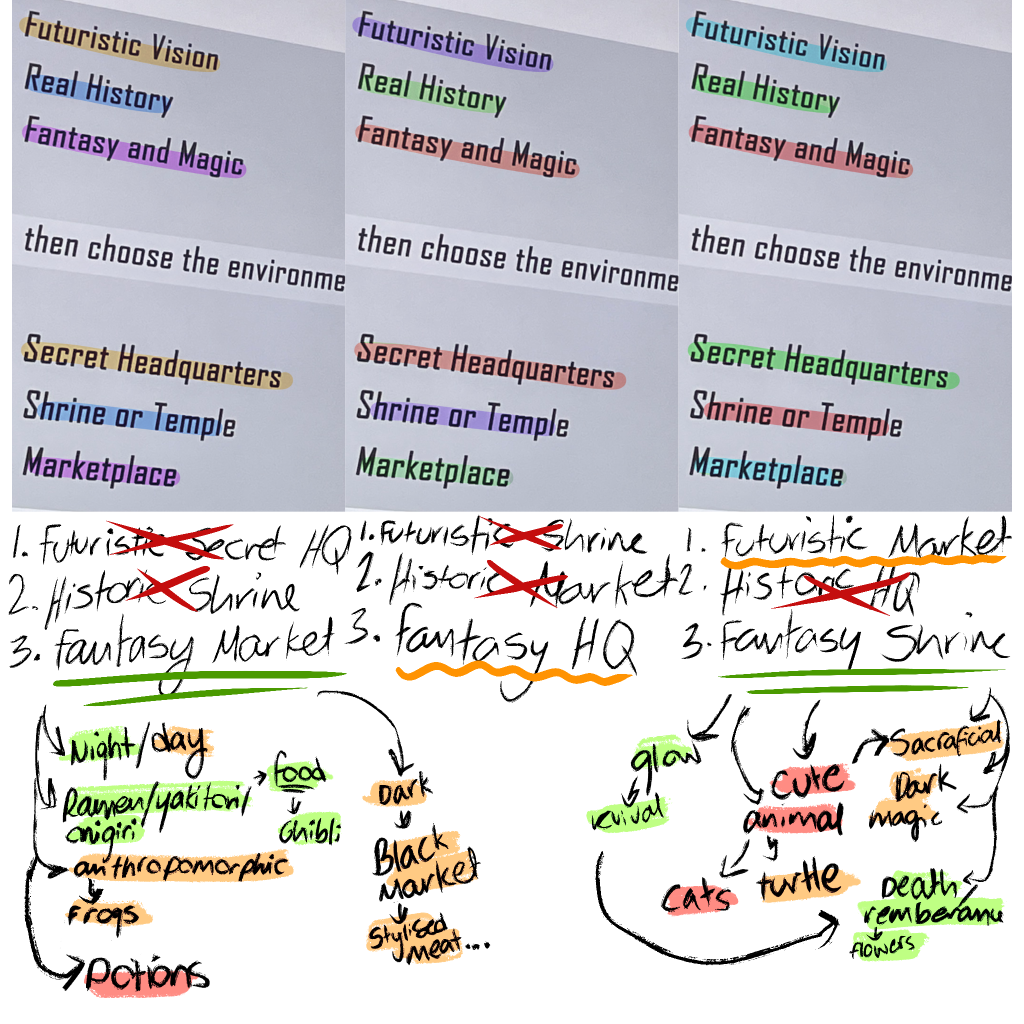 Futuristic Vision
Real History
Fantasy and Magic
then choose the environme
Secret Headquarters
Shrine or Temple
Marketplace
Futuristic Vision
Real History
Fantasy and Magic
then choose the environme
Secret Headquarters
Shrine or Temple
Marketplace
Futuristic Vision
Real History
Fantasy and Magic
then choose the environme
Secret Headquarters
Shrine or Temple
Marketplace
1. Futuristic Secret HQ
2. Historic Shrine
3. Fantasy Market
1. Futuristic Shrine
2. Historic Market
3. Fantasy HQ
1. Futuristic Market
2. Historic HQ
3. Fantasy Shrine
Night/day
Ramen/yakitori/
onigiri
food
Ghibli
anthropomorphic
Frogs
Potions
Dark
Black
Market
Stylised
meat...
glow
revival
cute
animal
cats
turtle
Sacraficial
Dark
magic
Death
rememberance
flowers